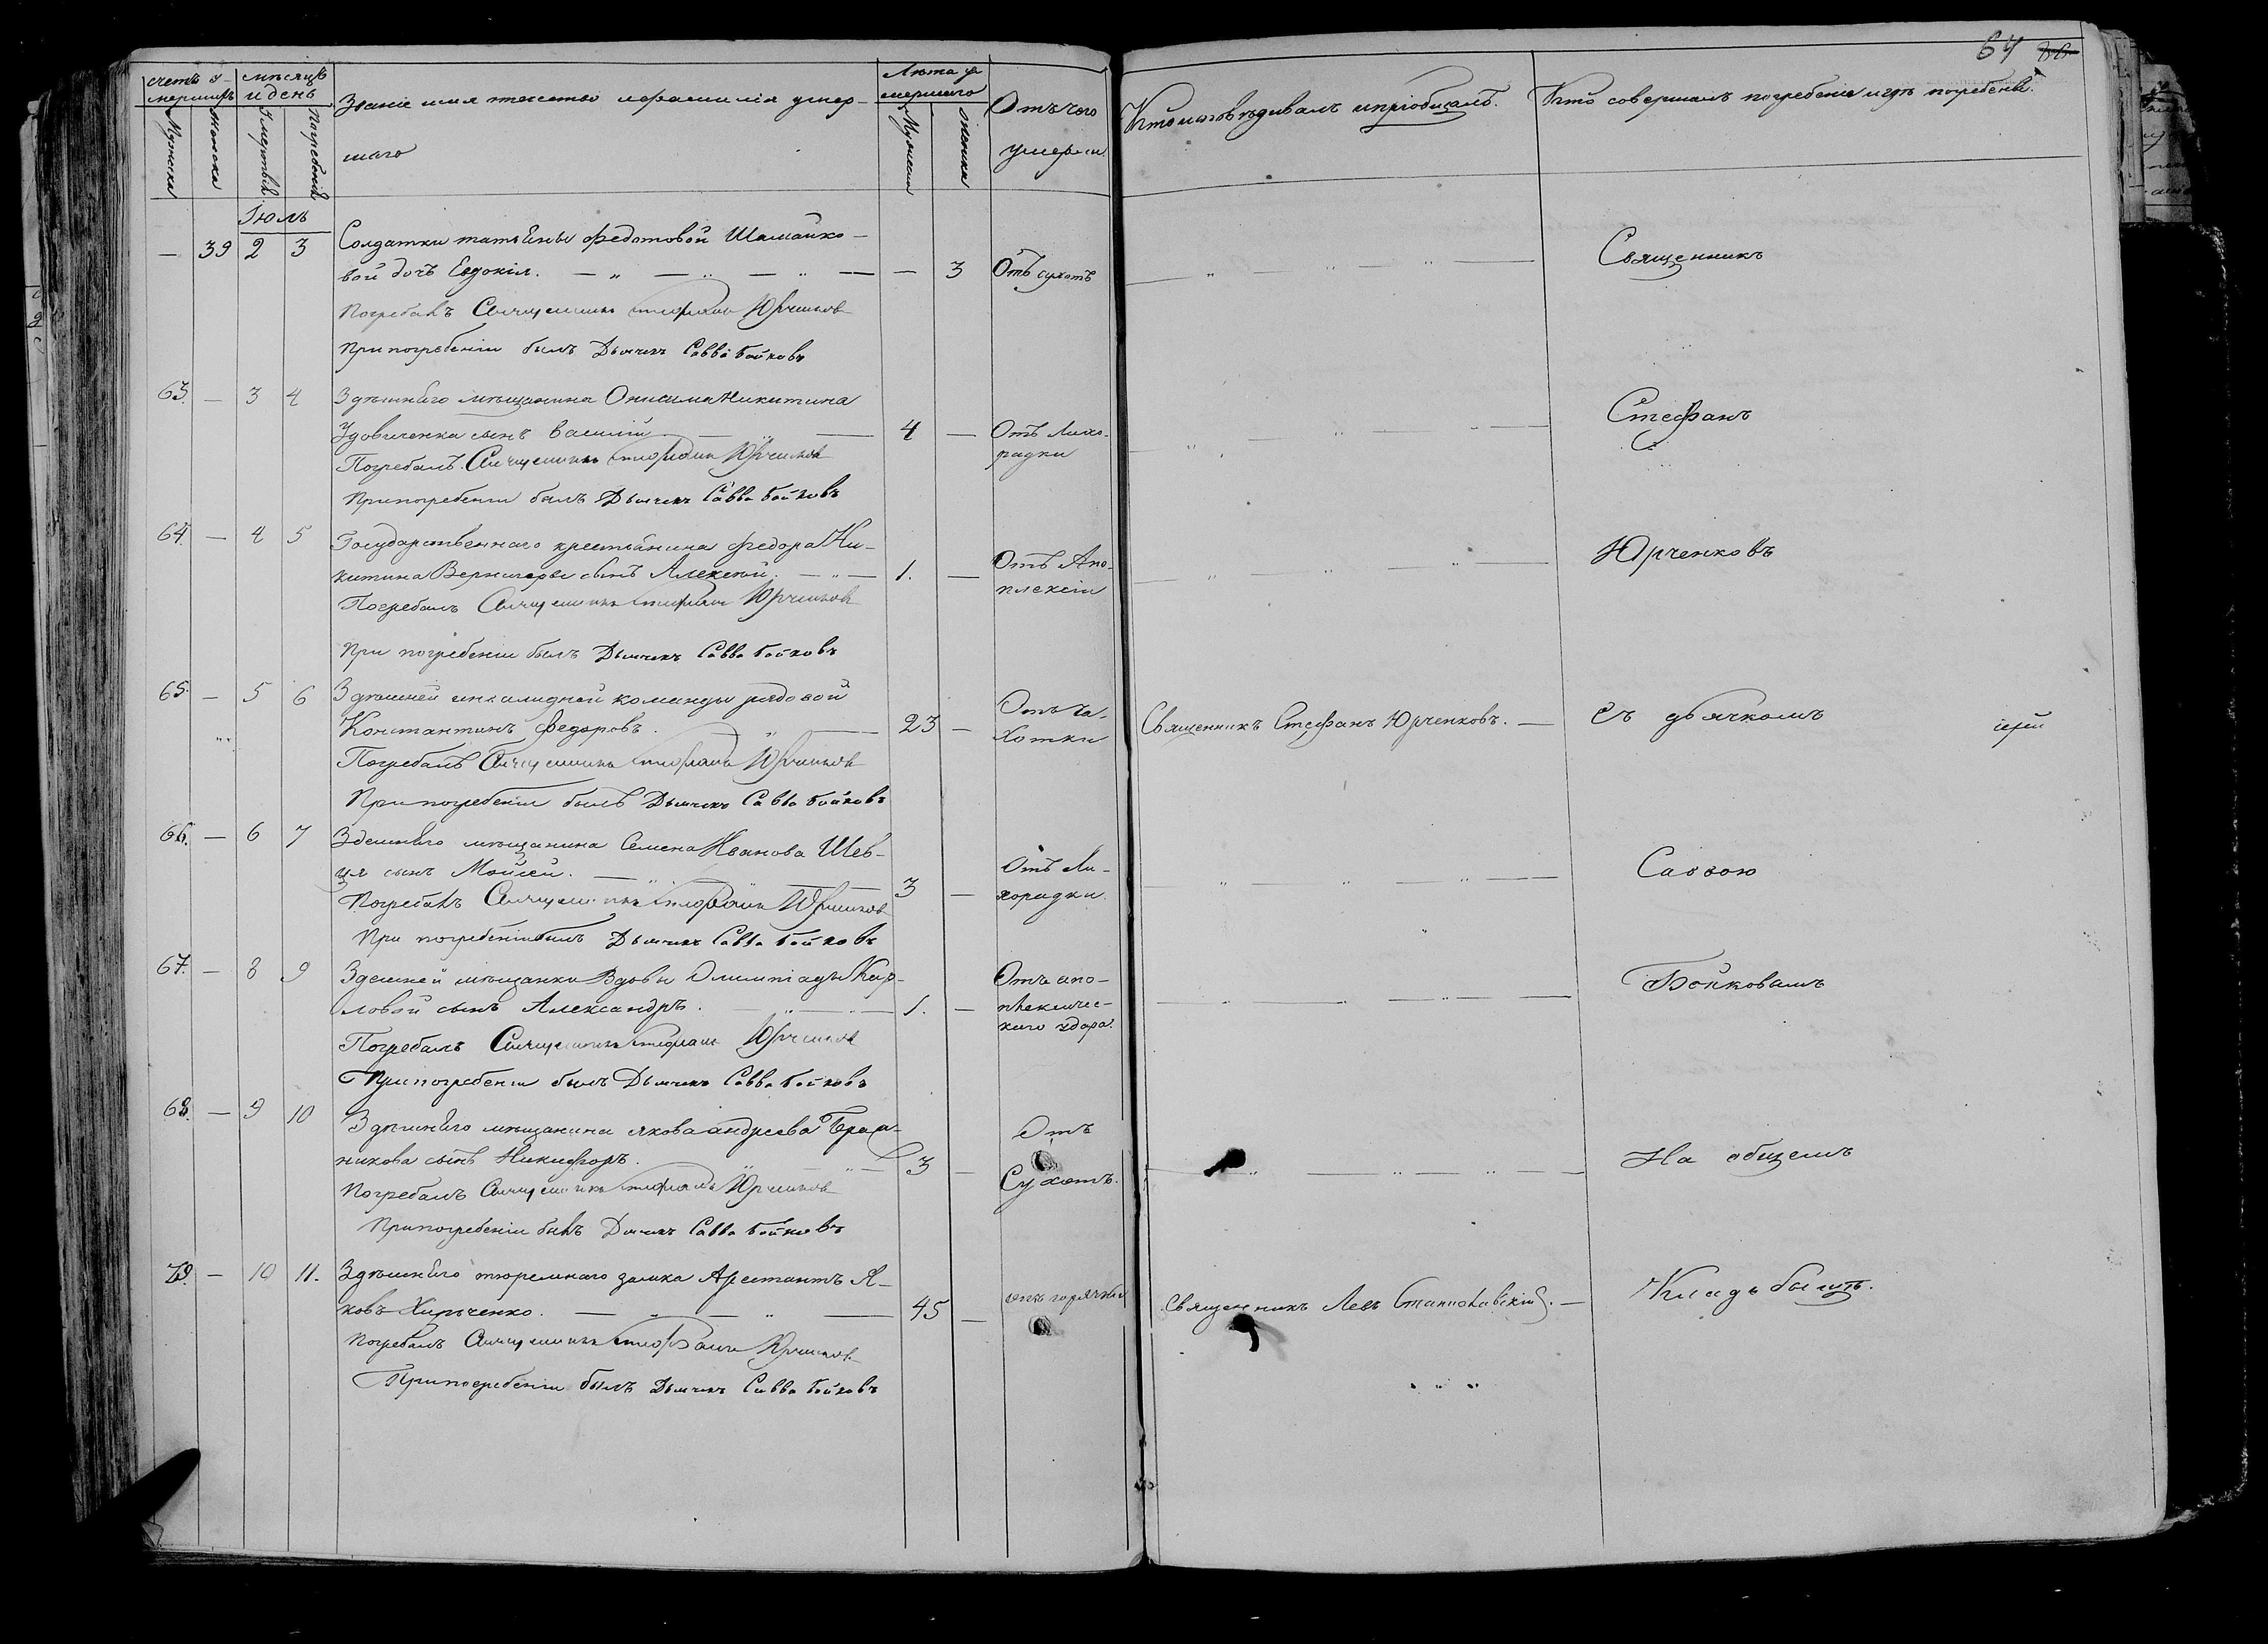 64
счетъ у-
мершихъ
мѣсяцъ
и день
Званіе имя отчество и фамилія умер-
шаго
Лѣта у
мершаго
Отъ чего
умерли
Кто исповѣдивалъ и пріобщалъ.
Кто совершалъ погребеніе и гдѣ погребены.
Мужска
Женска
Смерти
Погребенія
Мужеска
Женска
Іюль
— 39 2 3 Солдатки татьяны Федотовой Шамайко-
вой дочъ Евдокія. — „ — „ — „ — — 3 Отъ сухотъ
Священникъ
Погребалъ Священникъ Стефанъ Юрченковъ
При погребеніи былъ Дьячекъ Савва Бойковъ
63. — 3 4 Здѣшняго мѣщанина Онисима Никитина
Удовиченка сынъ Василій — „ — 4 — Отъ Лихо-
радки
Стефанъ
Погребалъ Священникъ Стефанъ Юрченковъ
При погребеніи былъ Дьячекъ Савва Бойковъ
64. — 4 5 Государственнаго крестьянина Федора Ни-
китина Вернигоры сынъ Алексѣй. — „ — 1. — Отъ Апо-
плексіи
Юрченковъ
Погребалъ Священникъ Стефанъ Юрченковъ
При погребеніи былъ Дьячекъ Савва Бойковъ
65. — 5 6 Здѣшней инвалидной команды рядовой
Константинъ Федоровъ. — „ — 23 — Отъ ча-
хотки
Священникъ Стефанъ Юрченковъ. — Съ дьячкомъ
Погребалъ Священникъ Стефанъ Юрченковъ
При погребеніи былъ Дьячекъ Савва Бойковъ
66. — 6 7 Здешняго мѣщанина Семена Иванова Шев-
ця сынъ Мойсей. — „ — 3 — Отъ Ли-
хорадки
Саввою
Погребалъ Священникъ Стефанъ Юрченковъ
При погребеніи былъ Дьячекъ Савва Бойковъ
67. — 8 9 Здешней мѣщанки Вдовы Олимпіады Кар-
ловой сынъ Александръ. — „ — 1. — Отъ апо-
плекличес-
каго удара.
Бойковымъ
Погребалъ Священникъ Стефанъ Юрченковъ
При погребеніи былъ Дьячекъ Савва Бойковъ
68. — 9 10 Здѣшняго мѣщанина Якова андреева
никова сынъ Никифоръ. — „ — 3 — Отъ
Сухотъ.
На общемъ
Погребалъ Священникъ Стефанъ Юрченковъ
При погребеніи былъ Дьячекъ Савва Бойковъ
— 10 11. Здѣшняго тюремнаго замка Арестантъ Я-
ковъ Хильченко. — „ — „ — 45 — отъ горячки
Священникъ Левъ Станиславскій. — Кладьбыщѣ.
Погребалъ Священникъ Стефанъ Юрченковъ
При погребеніи былъ Дьячекъ Савва Бойковъ